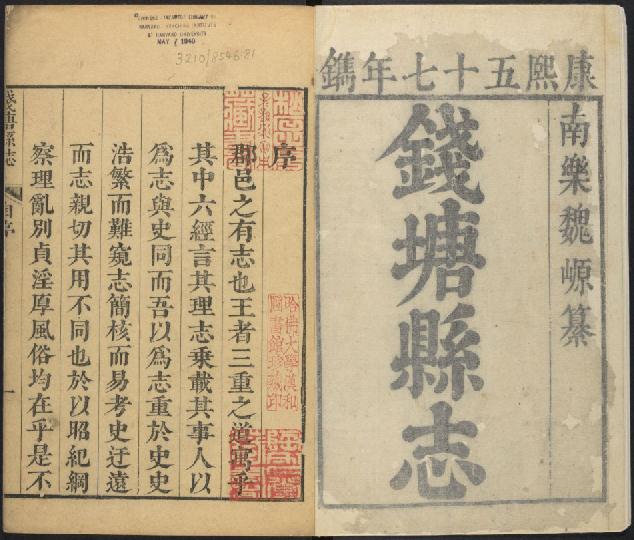 康熙五十七年鐫
南樂魏㟲纂
錢塘縣志
CHINESE-JAPANESE LIBRARY OF
HARVARD-YENCHING INSTITUTE
AT HARVARD UNIVERSITY
MAY 7 1940
3210/8546.81
序
郡邑之有志也王者三重之道寓乎
其中六經言其理志乘載其事人以
爲志與史同而吾以爲志重於史史
浩繁而難窺志簡核而易考史迂遠
而志親切其用不同也於以昭紀綱
察理亂別貞淫厚風俗均在乎是不
哈佛大學漢和
圖書館珍藏印
錢塘縣志
序
一